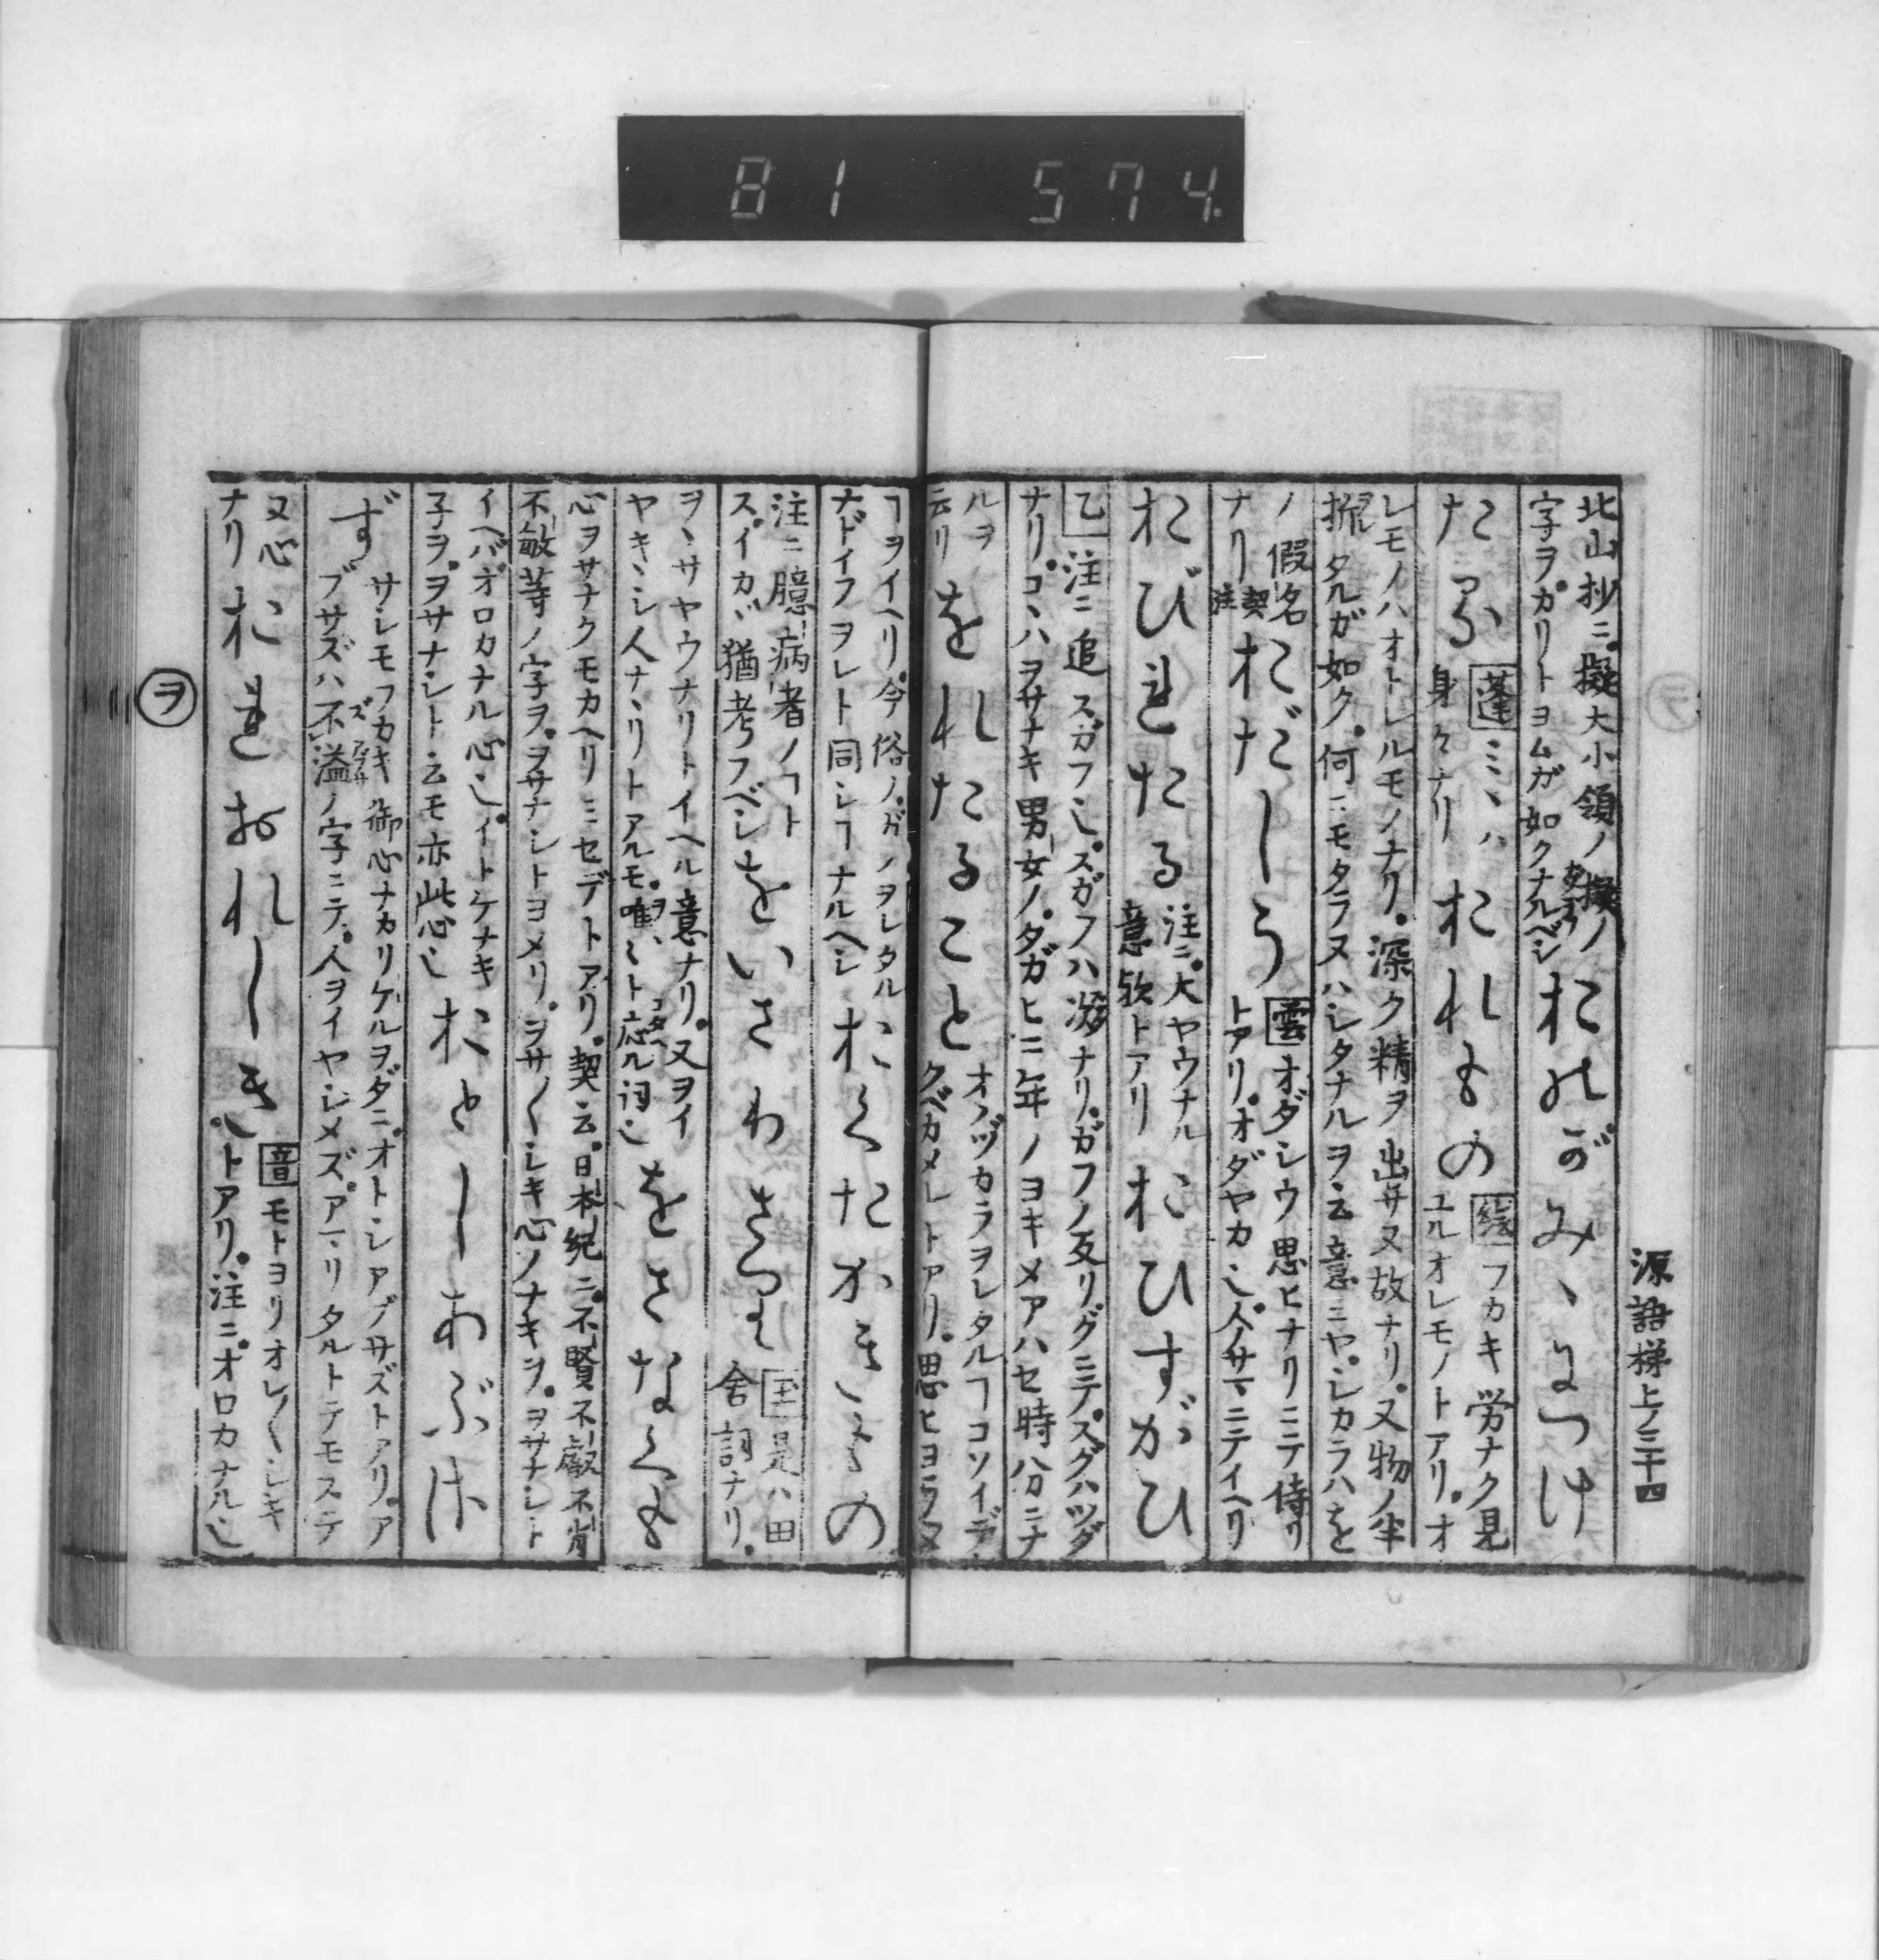 81 574
源語梯上ノ三十四
北山抄ニ。擬大小領ノ擬ノ
字ヲ。カリトヨムガ如クナルベシ
おのがみゝにつけ
たる
蓬ミヽハ
身々ナリ
おれもの
フカキ労ナク見
ユルオレモノトアリ。オ
レモノハオトレルモノナリ。深ク精ヲ出サヌ故ナリ。又物ノ半
タルガ如ク。何ニモタラヌハシタナルヲ云意ニヤ。シカラハを
ノ假名
ナリ契注
おだしう
雲オダシウ思ヒナリニテ侍リ
トアリ。オダヤカ也。人ノサマニテイヘリ
おびれたる
注ニ。大ヤウナル
意歟トアリ
おひすがひ
乙注ニ追スガフ也。スガフハ次ナリ。ガフノ反リグニテ。スグハツグ
ナリ。コヽハヲサナキ男女ノ。タガヒニ年ノヨキメアハセ時分ニナ
ルヲ
云リ
をれたること
オノヅカラヲレタルヿコソイデ
クベカメレトアリ。思ヒヨラヌ
ヿヲイヘリ。今俗ノ。ガノヲレタル
ナドイフヲレト同シヿナルヘシ
おくたかきもの
注ニ臆病者ノヿト
ス。イカヾ猶考フベシ
をいさわさつれ
是ハ田
舎詞ナリ。
ヲヽサヤウナリトイヘル意ナリ。又ヲイ
ヤキヽシ人ナヽリトアルモ。唯々ト応ル詞也
をさなくも
心ヲサナクモカヘリミセデトアリ。契云。日本紀ニ。不賢不叡不肖
不敏等ノ字ヲ。ヲサナシトヨメリ。ヲサ〱シキ心ノナキヲ。ヲサナシト
イヘバ。オロカナル心也。イトケナキ
子ヲ。ヲサナシト云モ亦此心也
おとしあぶさ
ず
サシモフカキ御心ナカリケルヲダニ。オトシアブサズトアリ。ア
ブサズハ不溢ノ字ニテ。人ヲイヤシメズ。アマリタルトテモステ
又心
ナリ
おれおれしき
音モトヨリオレ〱シキ
也トアリ。注ニ。オロカナル也
ヲ